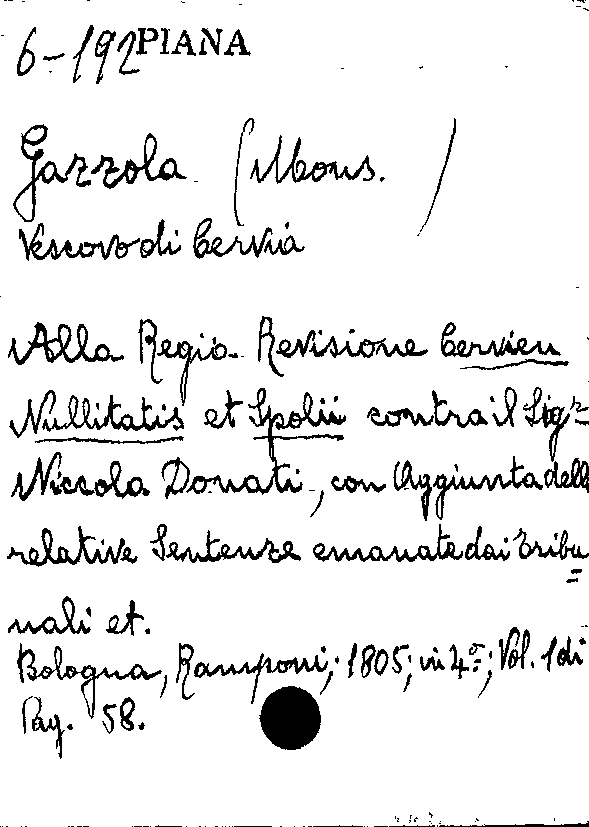 6-192 PIANA
Gazzola (Mons. )
Vescovo di Cervia
Alla Regia Revisione Cervien
Nullitatis et Spolii contra il Sigr=
Niccola Donati, con Aggiunta dell
relative Sentenze emanate dai Tribu
=
nali et.
Bologna, Ramponi; 1805; in 4º=; Vol. 1 di
Pag. 58.